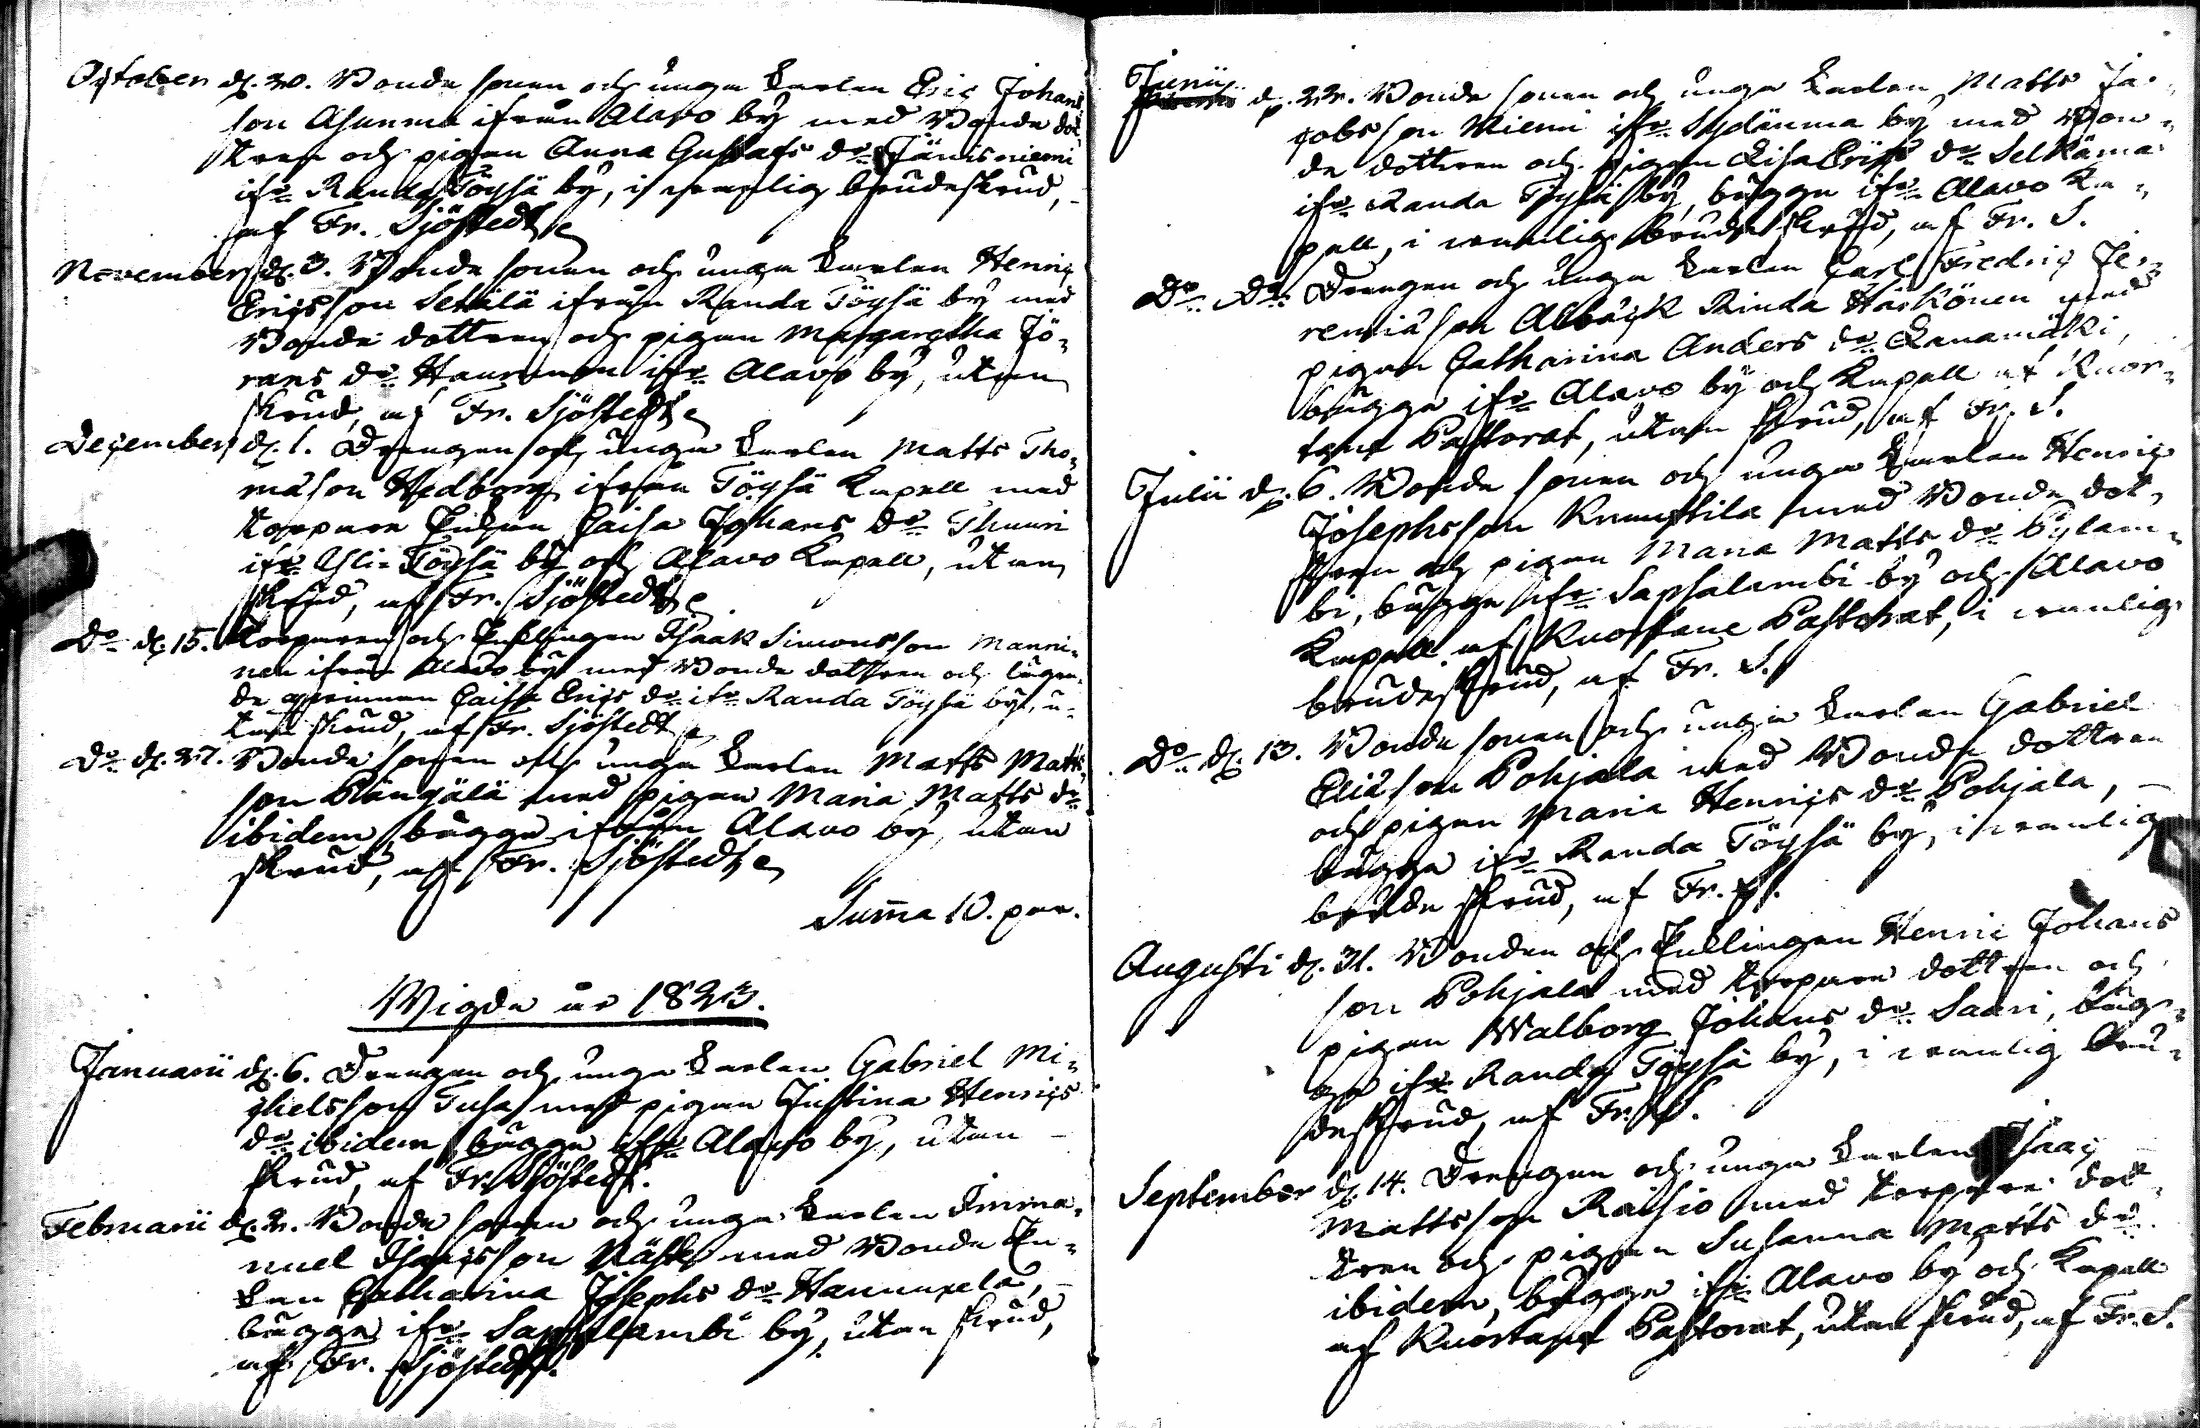 October d. 20. Bonde sonen och unga karlen Eric Johans
son Asunma ifrån Alavo by med Bonde dot
tren och pigan Anna Gustafs dr Jänisniemi
ifr. Randa Töysä by, i vanlig brudeskrud,
af Fr. Sjöstedt
November d. 3. Bonde sonen och unga karlen Henric
Ericsson Setälä ifrån Randa Töysä by med
Bonde dottren och pigan Margaretha Jö-
rans dr Haurunen ifr. Alavo by, utan
skrud, af Fr. Sjöstedt
December d. 1. Drengen och unga karlen Matts Tho-
mason Hedborg ifrån Töysä Kapell med
torpare Enkan Caisa Johans dr Thuuri
ifr. Ylis Töysä by och Alavo Kapell, utan
skrud, af Fr. Sjöstedt
Do d. 15. Torparen och Enklingen Isaak Simonsson Manni-
nen ifrån Alavo by med Bonde dottren och lägen-
de qvinnan Caisa Erics dr ifr. Randa Töysä by, u-
tan skrud, af Fr. Sjöstedt
Do d. 27. Bonde sonen och unga karlen Matts Matts
son Rängälä med pigan Maria Matts dr
ibidem, bägge ifrån Alavo by, utan
skrud, af Fr. Sjöstedt
Summa 10. par.
Wigde år 1823.
Januarii d. 6. Drengen och unga karlen Gabriel Mi-
chelsson Tusa med pigan Justina Henrics
dr ibidem, bägge ifr. Alavo by, utan
skrud, af Fr. Sjöstedt.
Februarii d. 2. Bonde sonen och unga karlen Imma-
nuel Isacsson Näsk med Bonde En-
kan Catharina Josephs dr Hannuxela,
bägge ifr. Sapsalambi by, utan skrud,
af Fr. Sjöstedt.
Junii d. 22. Bonde sonen och unga karlen Matts Ja-
cobsson Niemi ifr. Sydänma by med Bon-
de dottren och pigan Lisa Erics dr Selkäma
ifr. Randa Töysä by, bägge ifr. Alavo Ka-
pell, i vanlig brudeskrud, af Fr. S.
Do Do Drengen och unga karlen Carl Fredric Je-
remiason Albäck Rinda Härkönen med
pigan Catharina Anders dr Lanamäki,
bägge ifr. Alavo by och Kapell af Kuor-
tane Pastorat, utan skrud, af Fr. S.
Julii d. 6. Bonde sonen och unga karlen Henric
Josephsson Knuuttila med Bonde dot-
tren och pigan Maria Matts dr Pylam-
bi, bägge ifr. Sapsalambi by och Alavo
Kapell af Kuortane Pastorat, i vanlig
brudeskrud, af Fr. S.
Do d. 13. Bonde sonen och unga karlen Gabriel
Eliason Pohjala med Bonde dottren
och pigan Maria Henrics dr Pohjala,
bägge ifr. Randa Töysä by, i vanlig
brude skrud, af Fr. S.
Augusti d. 31. Bonden och Enklingen Henric Johans
son Pohjala med torpare dottren och
pigan Walborg Johans dr Saari, bäg-
ge ifr. Randa Töysä by, i vanlig bru-
deskrud, af Fr. S.
September d. 14. Drengen och unga karlen Isaac
Mattsson Raisio med torpare dot-
tren och pigan Susanna Matts dr
ibidem, bägge ifr. Alavo by och Kapell
af Kuortane Pastorat, utan skrud, af Fr. S.